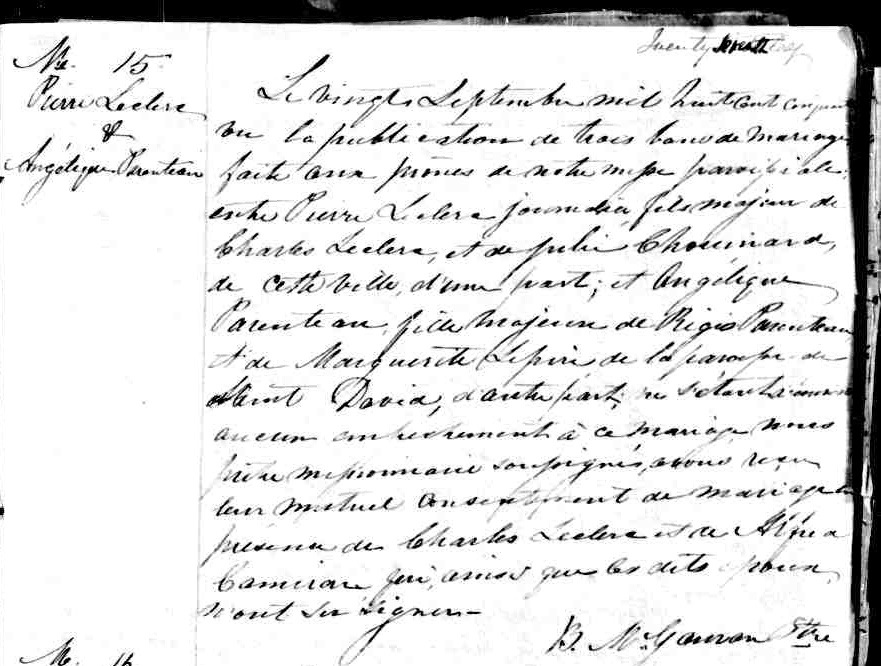 Twenty seventh
M. 15.
Pierre Leclerc
&
Angélique Parenteau
Le vingt Septembre mil huit cent cinquante
vu la publication de trois bans de mariage
faite aux prônes de notre messe paroissiale
entre Pierre Leclerc journalier, fils majeur de
Charles Leclerc, et de Julie Chouinard,
de cette ville, d'une part; et Angélique
Parenteau, fille majeure de Régis Parenteau
et de Marguerite Lepire de la paroisse de
Saint David, d'autre part; ne s'étant
aucun empêchement à ce mariage nous
prêtre missionnaire soussigné, avons reçu
leur mutuel consentement de mariage en
présence de Charles Leclerc et de
Camirare qui, ainsi que les dits époux,
n'ont su signer.
B. McGauran Ptre
M. 16